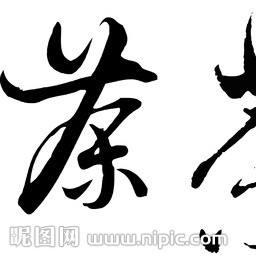 茶
昵图网 www.nipic.com